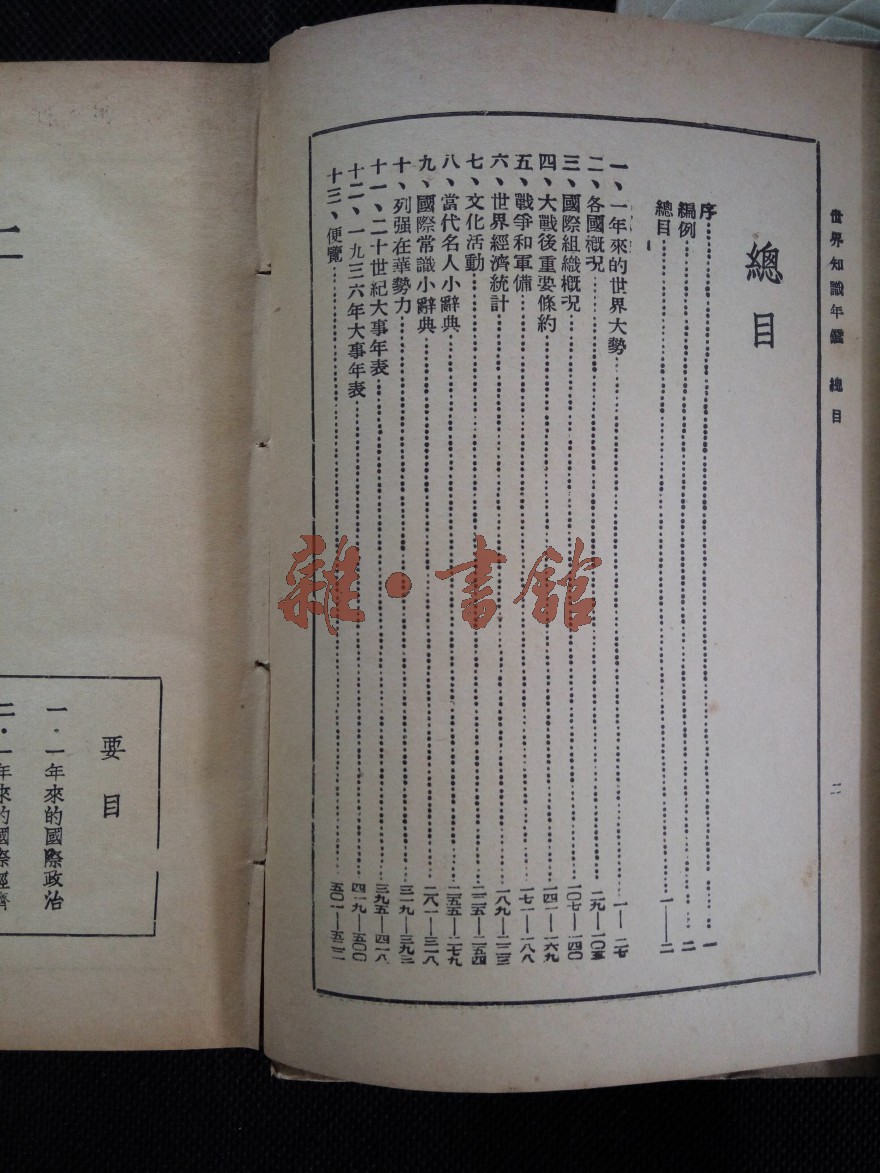 世界知識年鑑 總目
二
總目
序……一
編例……二
總目……一—二
一、一年來的世界大勢……一—二七
二、各國概况……二九—一〇五
三、國際組織概况……一〇七—一四〇
四、大戰後重要條約……一四一—一六九
五、戰爭和軍備……一七一—一八八
六、世界經濟統計……一八九—二二三
七、文化活動……二二五—二五四
八、當代名人小辭典……二五五—二七九
九、國際常識小辭典……二八一—三一八
十、列强在華勢力……三一九—三九三
十一、二十世紀大事年表……三九五—四一八
十二、一九三六年大事年表……四一九—五〇〇
十三、便覽……五〇一—五二二
雜·書館
要目
一·一年來的國際政治
二·一年來的國際經濟